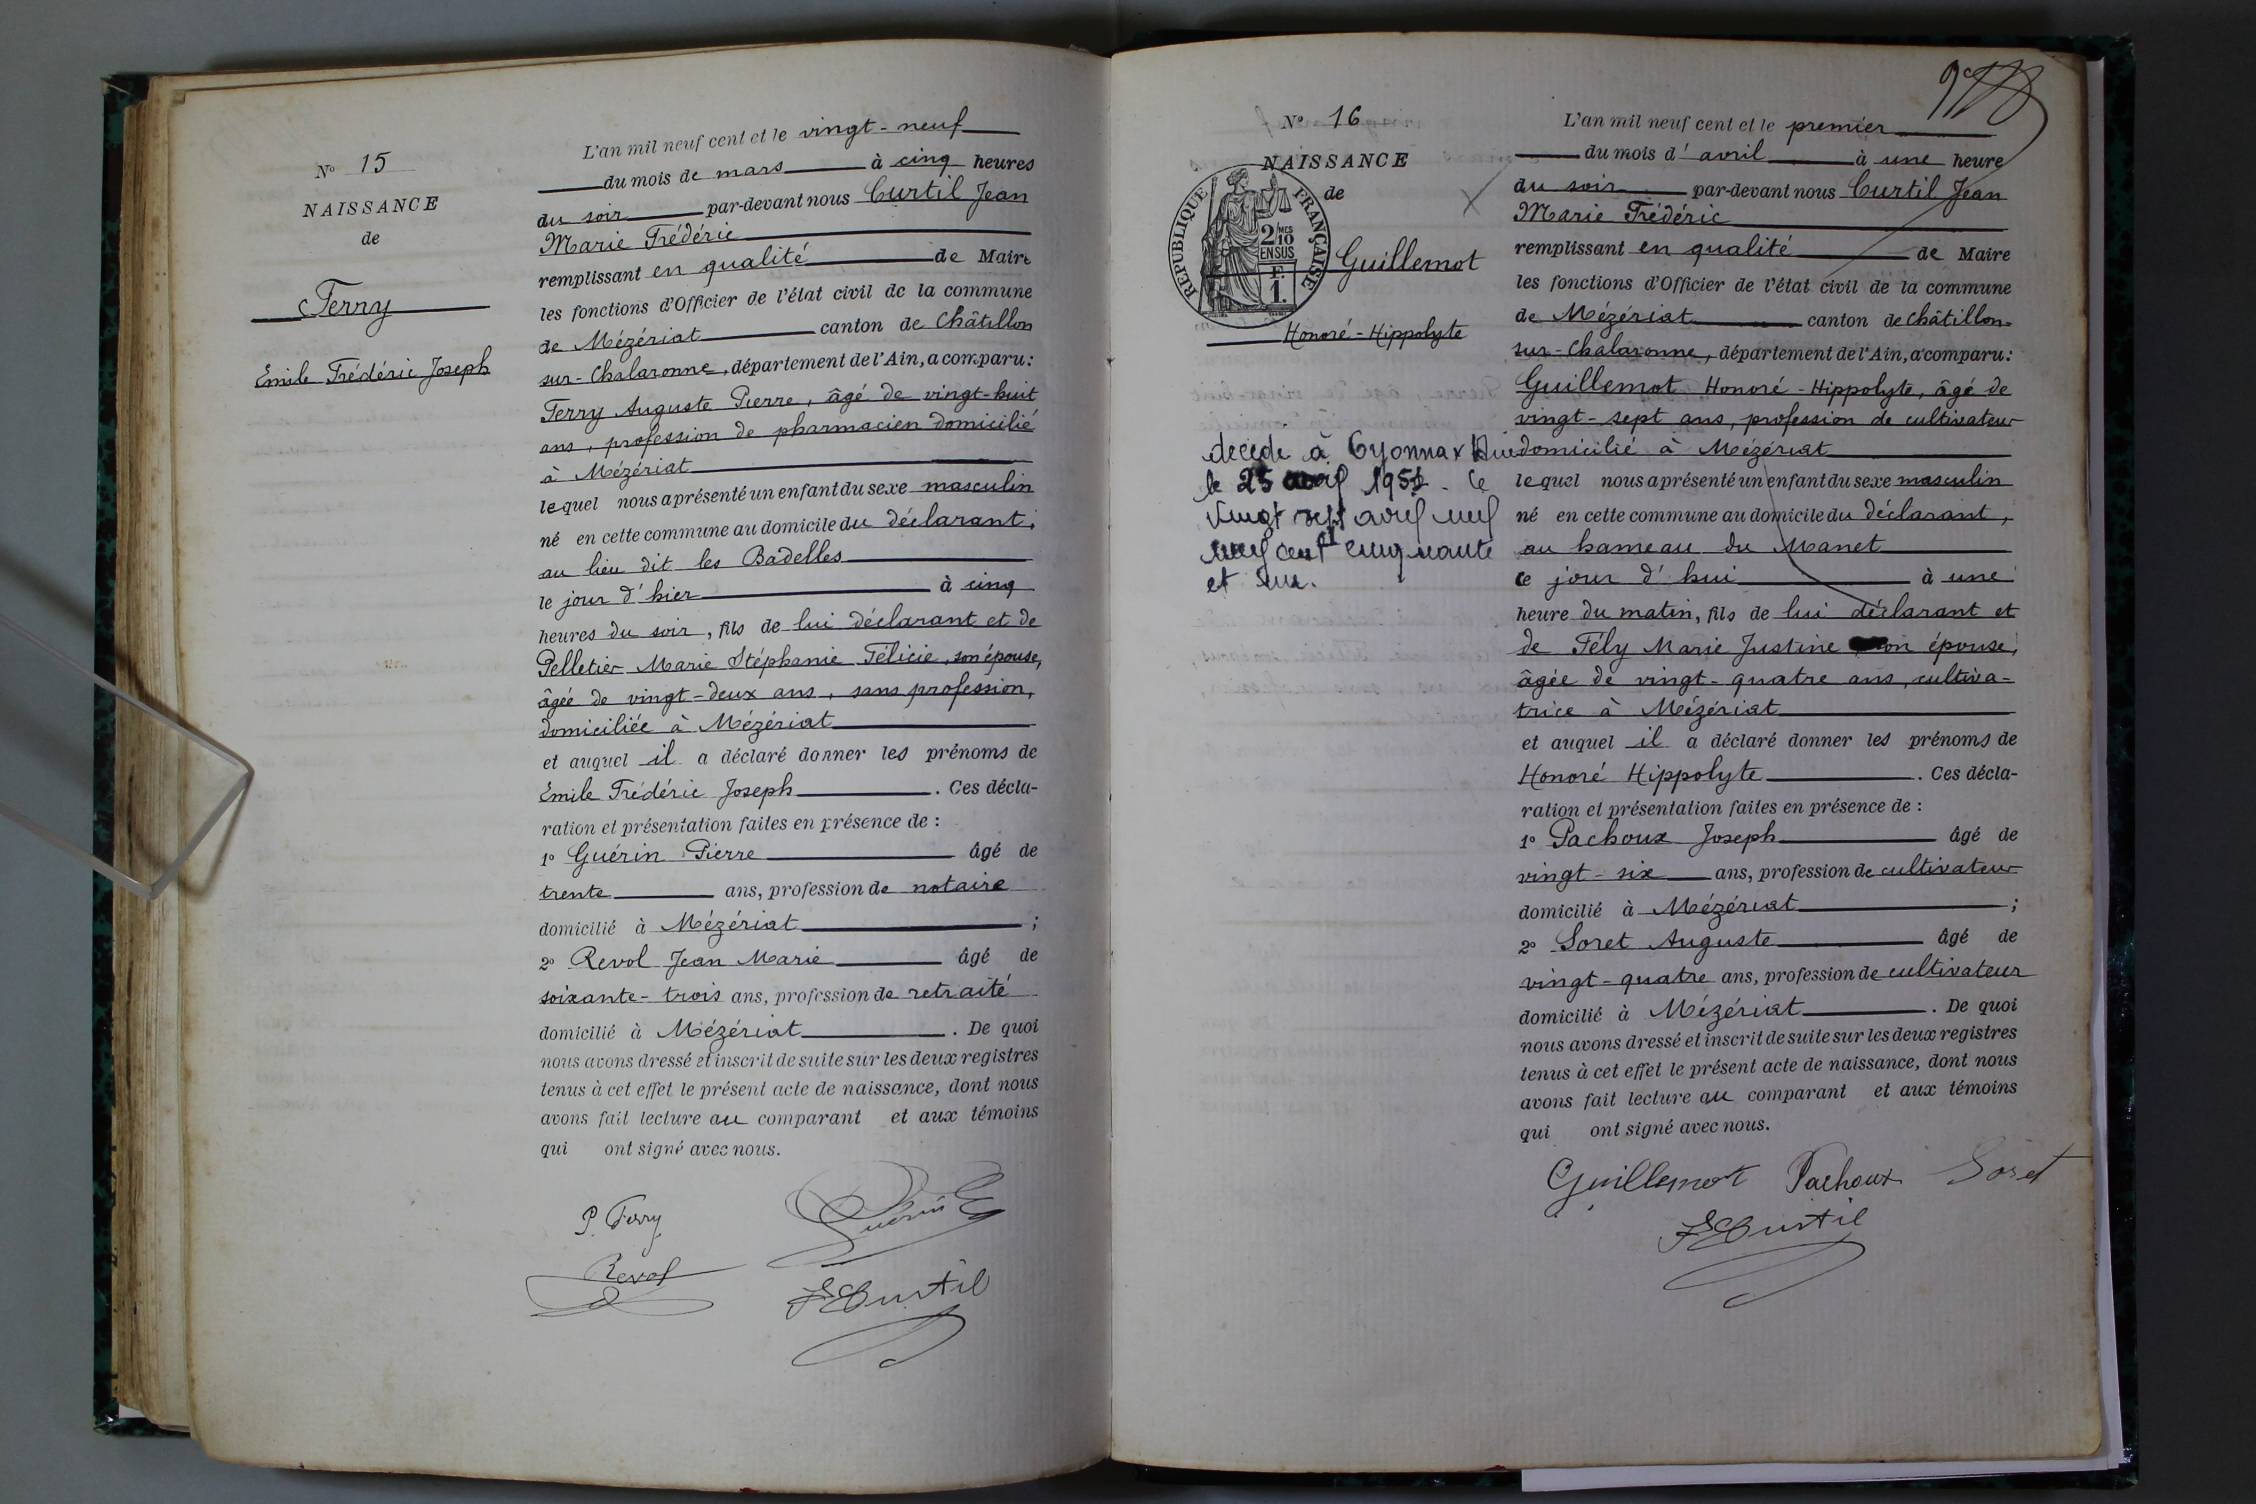 N° 15
NAISSANCE
de
Ferry
Emile Frédéric Joseph
L'an mil neuf cent et le vingt-neuf
du mois de mars à cinq heures
du soir par-devant nous Curtil Jean
Marie Frédéric
remplissant en qualité de Maire
les fonctions d'Officier de l'état civil de la commune
de Mézériat canton de Châtillon
sur-Chalaronne, département de l'Ain, a comparu:
Ferry Auguste Pierre, âgé de vingt-huit
ans, profession de pharmacien domicilié
à Mézériat
lequel nous a présenté un enfant du sexe masculin
né en cette commune au domicile du déclarant,
au lieu dit les Badelles
le jour d'hier à cinq
heures du soir, fils de lui déclarant et de
Pelletier Marie Stéphanie Félicie, son épouse,
âgée de vingt-deux ans, sans profession,
domiciliée à Mézériat
et auquel il a déclaré donner les prénoms de
Emile Frédéric Joseph. Ces décla-
ration et présentation faites en présence de :
1° Guérin Pierre âgé de
trente ans, profession de notaire
domicilié à Mézériat ;
2° Revol Jean Marie âgé de
soixante-trois ans, profession de retraité
domicilié à Mézériat. De quoi
nous avons dressé et inscrit de suite sur les deux registres
tenus à cet effet le présent acte de naissance, dont nous
avons fait lecture au comparant et aux témoins
qui ont signé avec nous.
P. Ferry Guérin
Revol
Curtil
N° 16
NAISSANCE
de
RÉPUBLIQUE FRANÇAISE
2/10 MES
EN SUS
F.
1.
Guillemot
Honoré-Hippolyte
décédé à Oyonnax Ain
le 25 avril 1951. le
vingt sept avril mil
neuf cent cinquante
et un.
L'an mil neuf cent et le premier
du mois d'avril à une heure
du soir par-devant nous Curtil Jean
Marie Frédéric
remplissant en qualité de Maire
les fonctions d'Officier de l'état civil de la commune
de Mézériat canton de Châtillon-
sur-Chalaronne, département de l'Ain, a comparu:
Guillemot Honoré-Hippolyte, âgé de
vingt-sept ans, profession de cultivateur
domicilié à Mézériat
lequel nous a présenté un enfant du sexe masculin
né en cette commune au domicile du déclarant,
au hameau du Manet
ce jour d'hui à une
heure du matin, fils de lui déclarant et
de Fély Marie Justine son épouse,
âgée de vingt-quatre ans, cultiva-
trice à Mézériat
et auquel il a déclaré donner les prénoms de
Honoré Hippolyte. Ces décla-
ration et présentation faites en présence de :
1° Pachoux Joseph âgé de
vingt-six ans, profession de cultivateur
domicilié à Mézériat ;
2° Soret Auguste âgé de
vingt-quatre ans, profession de cultivateur
domicilié à Mézériat. De quoi
nous avons dressé et inscrit de suite sur les deux registres
tenus à cet effet le présent acte de naissance, dont nous
avons fait lecture au comparant et aux témoins
qui ont signé avec nous.
Guillemot Pachoux Soret
Curtil